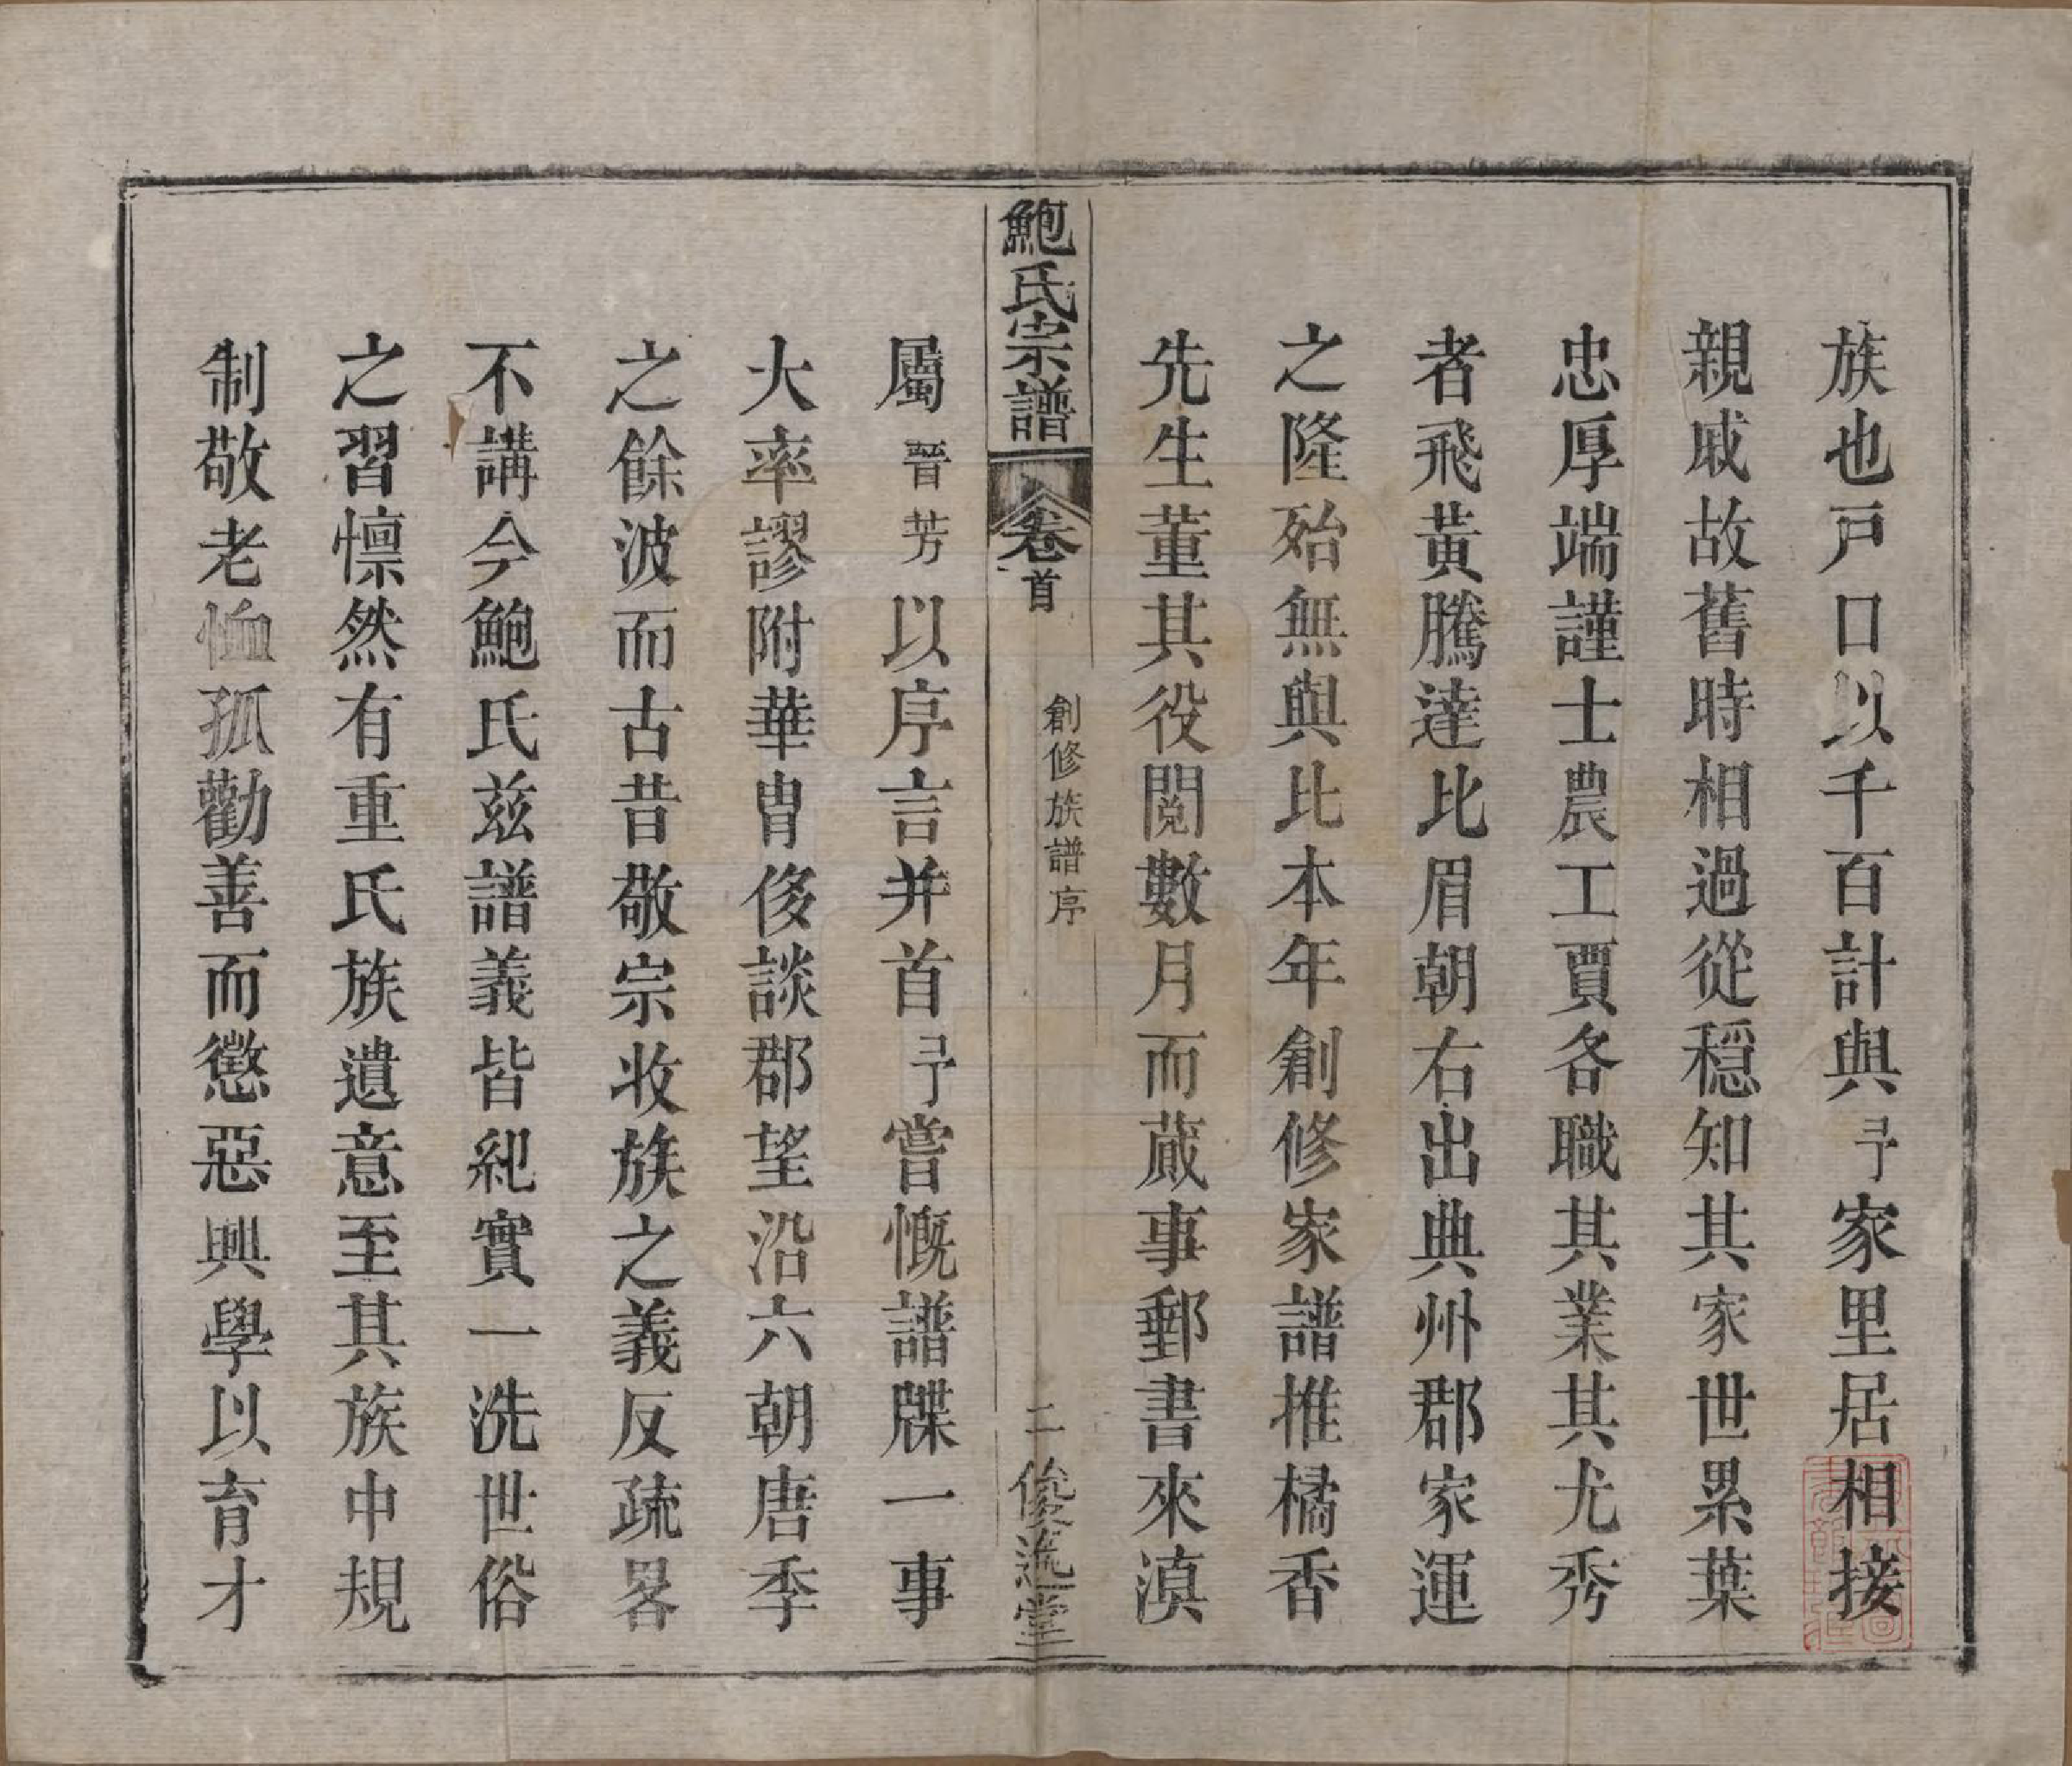 族也戸口以千百計與予家里居相接
親戚故舊時相過從穩知其家世累葉
忠厚端謹士農工賈各職其業其尤秀
者飛黃騰達比眉朝右出典州郡家運
之隆殆無與比本年創修家譜推橘香
先生董其役閱數月而蕆事郵書來滇
鮑氏宗譜 卷首 創修族譜序 二 俊逸堂
屬晉芳以序言并首予嘗慨譜牒一事
大率謬附華胄侈談郡望沿六朝唐季
之餘波而古昔敬宗收族之義反疏畧
不講今鮑氏茲譜義皆紀實一洗世俗
之習懍然有重氏族遺意至其族中規
制敬老恤孤勸善而懲惡興學以育才